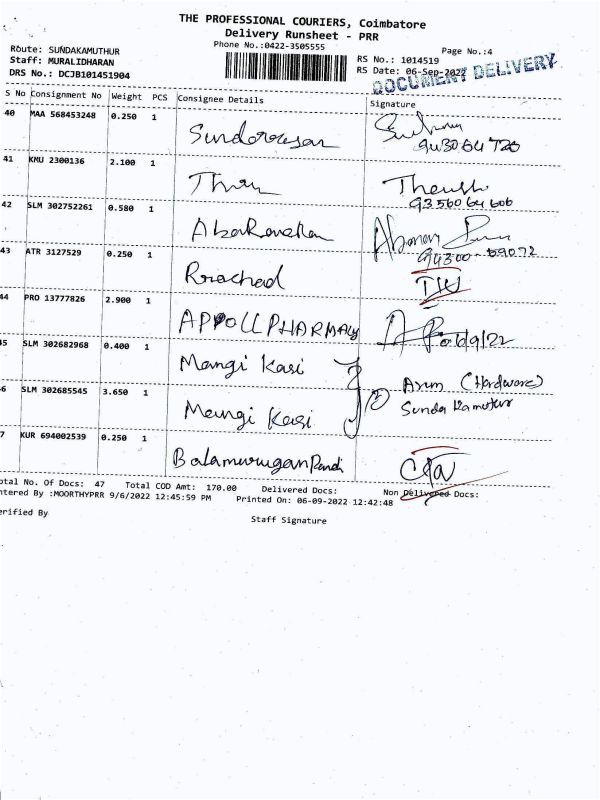 THE PROFESSIONAL COURIERS, Coimbatore
Delivery Runsheet - PRR
Phone No.:0422-3505555
Page No.:4
Route: SUNDAKAMUTHUR
Staff: MURALIDHARAN
DRS No.: DCJB101451904
RS No.: 1014519
RS Date: 06-Sep-2022
DOCUMENT DELIVERY
S No Consignment No Weight PCS Consignee Details Signature
40 MAA 568453248 0.250 1
41 KMU 2300136 2.100 1
42 SLM 302752261 0.580 1
43 ATR 3127529 0.250 1
44 PRO 13777826 2.900 1 APPOLL PHARMACY
45 SLM 302682968 0.400 1 Mangi Kasi
46 SLM 302685545 3.650 1 Mangi Kasi Arum (Hardware)
47 KUR 694002539 0.250 1 Balamurugan Pandi
Total No. Of Docs: 47 Total COD Amt: 170.00 Delivered Docs: Non Delivered Docs:
Entered By :MOORTHYPRR 9/6/2022 12:45:59 PM Printed On: 06-09-2022 12:42:48
Verified By Staff Signature